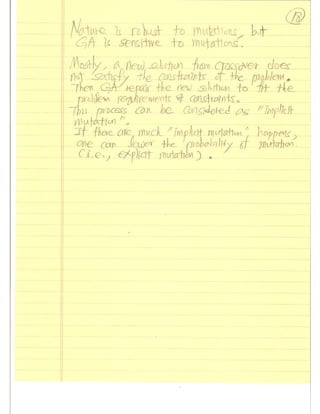 13
Nature is robust to mutations, but
GA is sensitive to mutations.
Mostly, a new solution from crossover does
not satisfy the constraints of the problem.
Then GA repairs the new solution to fit the
problem requirements & constraints.
This process can be considered as "implicit
mutation".
If there are much "implicit mutation" happens,
one can lower the probability of mutation
(i.e., explicit mutation).